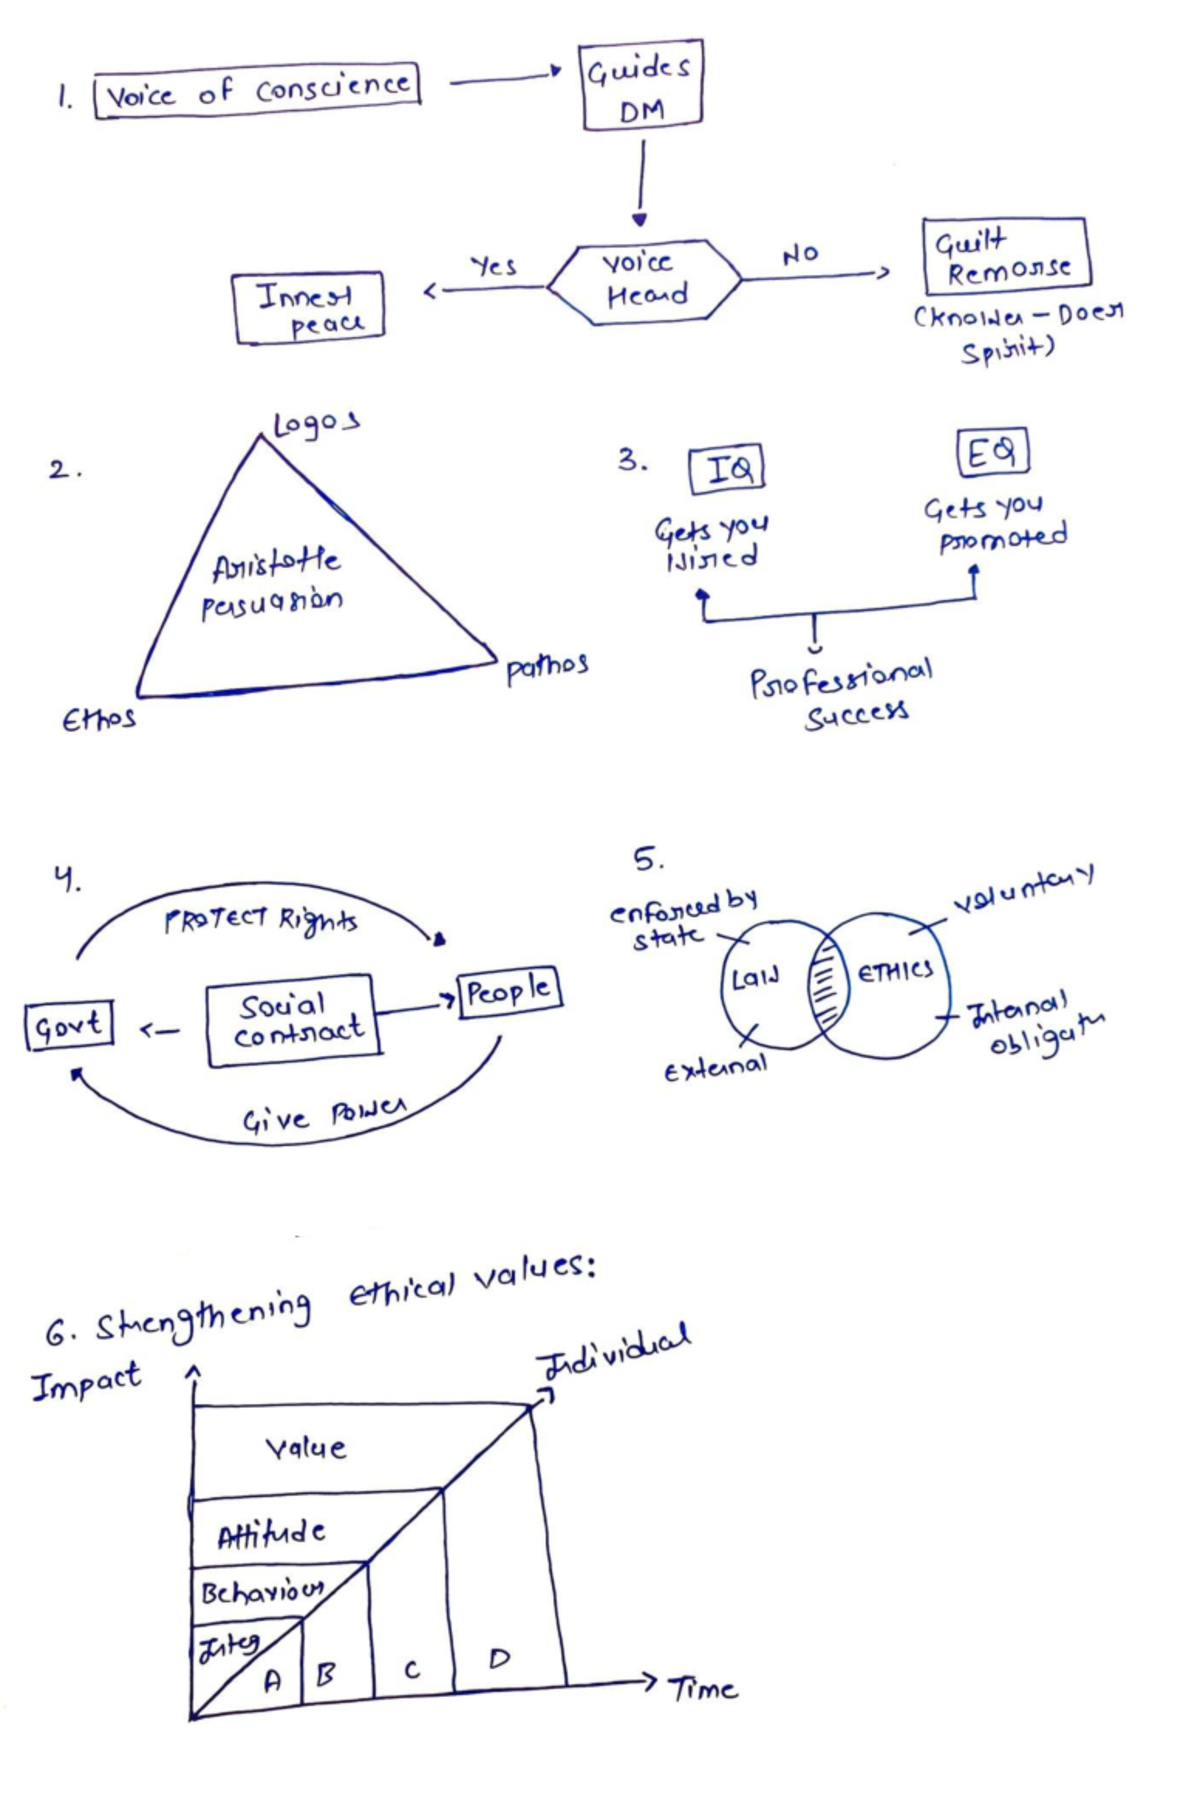 1. Voice of Conscience
Guides
DM
Voice
Heard
Yes
No
Inner
peace
Guilt
Remorse
(Knower - Doer
Spirit)
2.
Logos
Aristotle
Persuasion
Ethos
Pathos
3.
IQ
Gets you
Hired
EQ
Gets you
Promoted
Professional
Success
4.
PROTECT Rights
Govt
Social
Contract
People
Give Power
5.
enforced by
state
voluntary
LAW
ETHICS
External
Internal
6. Strengthening ethical values:
Impact
Individual
Value
Attitude
Behaviour
Integ
A
B
C
D
Time